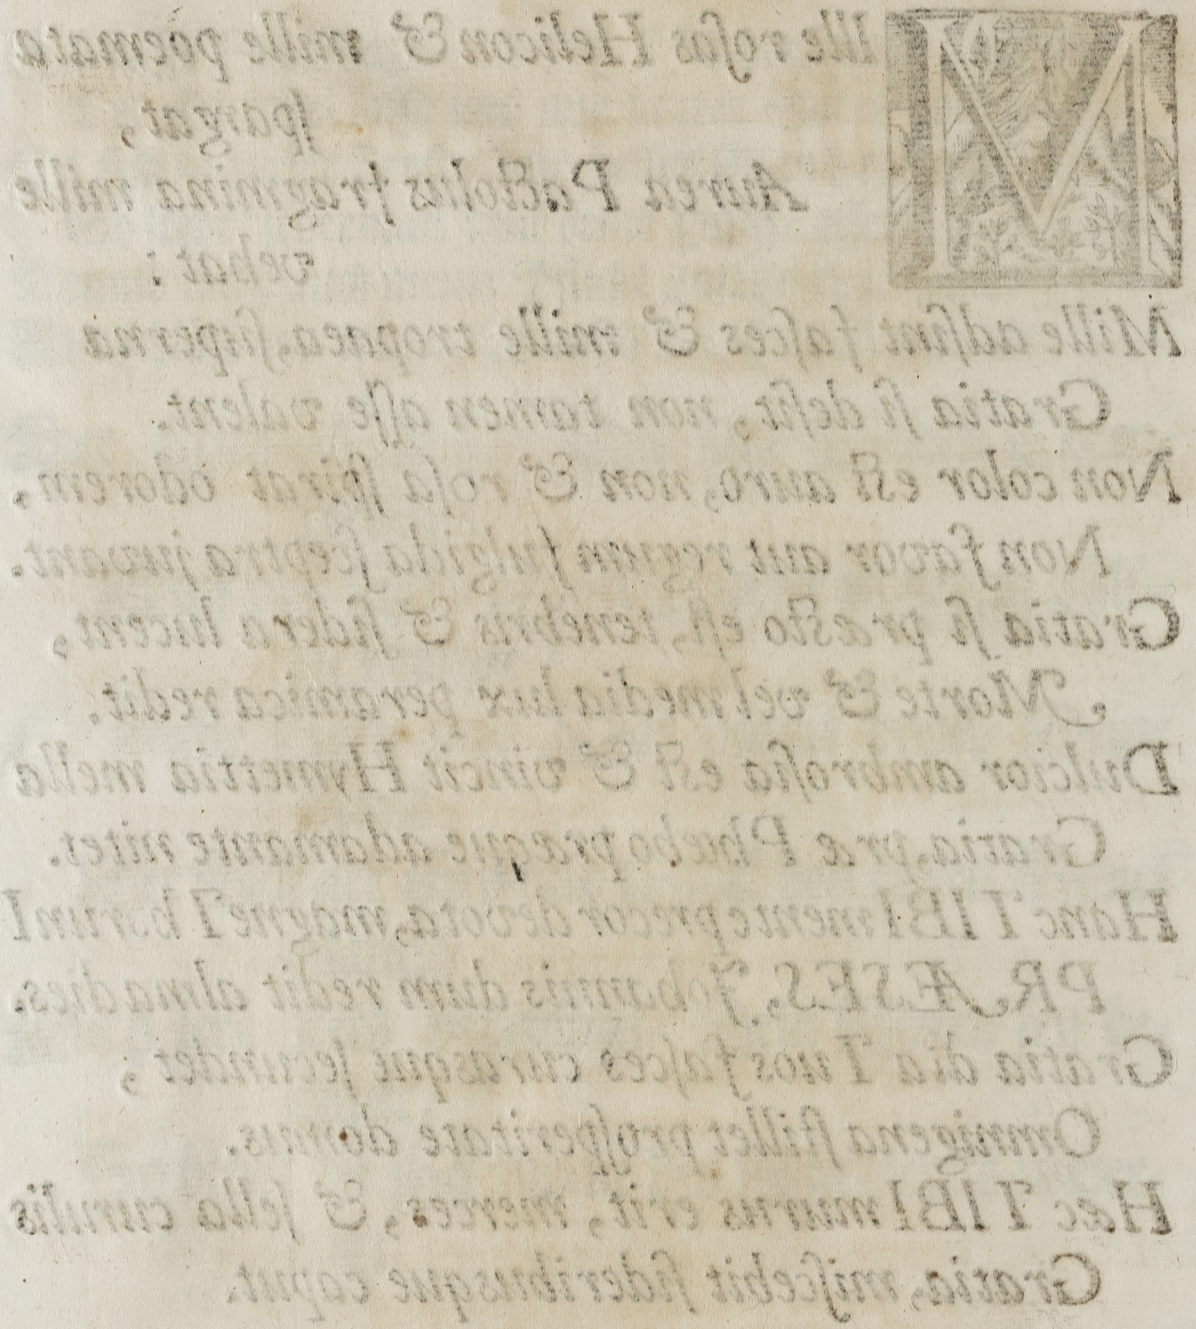 Mille rosas Helicon & mille poëmata
spargat,
Aurea Pactolus fragmina mille
vehat:
Mille adsint fasces & mille tropaea, superna
Gratia si desit, non tamen asse valent.
Non color est auro, non & rosa spirat odorem,
Non favor aut regum fulgida sceptra juvant.
Gratia si præsto est, tenebris & sidera lucent,
Morte & vel media lux peramica redit.
Dulcior ambrosia est & vincit Hymettia mella
Gratia, præ Phœbo præque adamante nitet.
Hanc TIBI mente precor devota, magne Thorunî
PRÆSES, Johannis dum redit alma dies.
Gratia dia Tuos fasces curasque secundet,
Omnigena stillet prosperitate domus.
Hæc TIBI munus erit, merces, & sella curulis
Gratia, miscebit sideribusque caput.